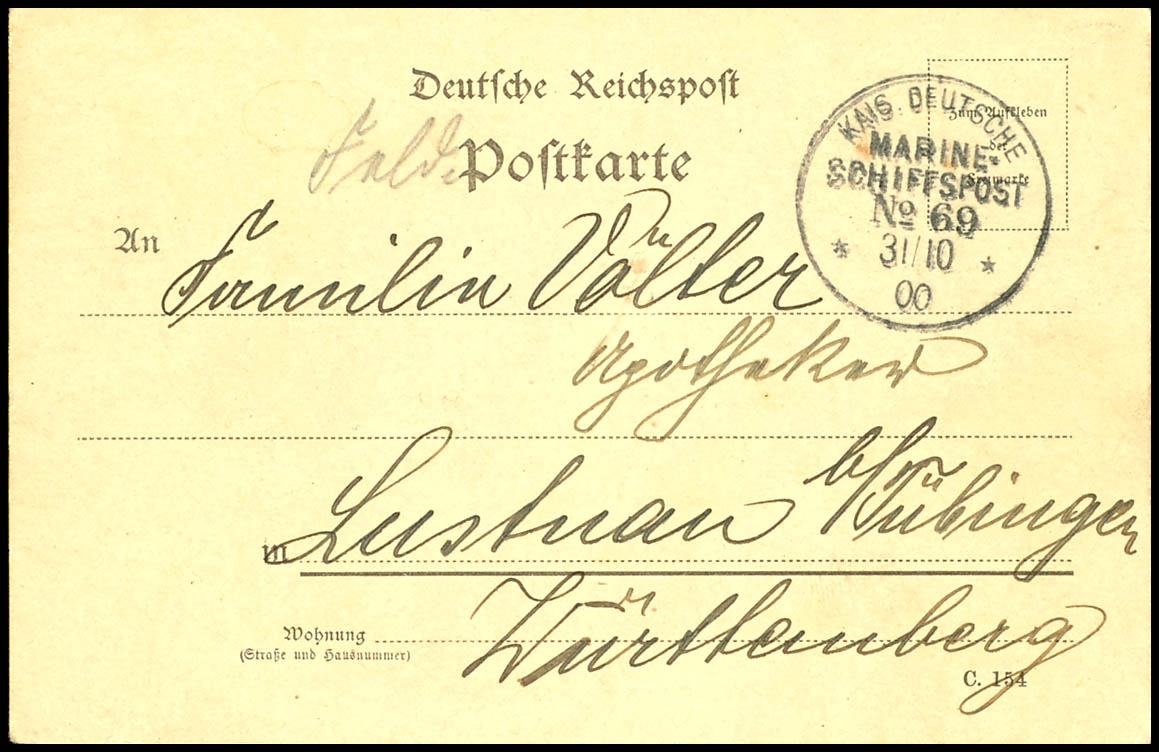 Deutsche Reichspost
Feld-Postkarte
KAIS. DEUTSCHE
MARINE-
SCHIFFSPOST
No 69
* 31/10 *
00
Zum Aufkleben
der
Freimarke
An Familie Völter
Apotheker
in Lustnau b/Tübingen
Wohnung Württemberg
(Straße und Hausnummer)
C. 154